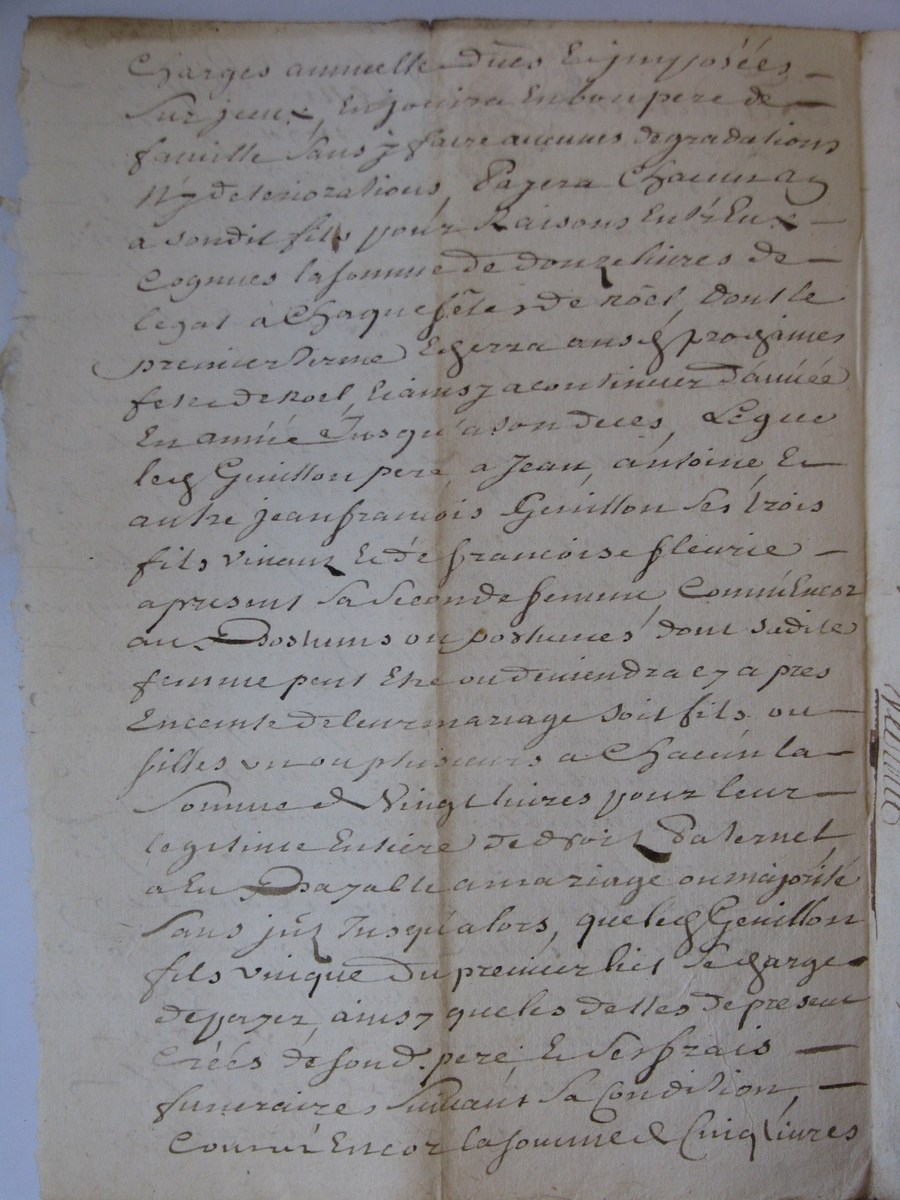 Charges annuelle dües & imposées
Sur jceux, En jouira En bon pere de
famille Sans y faire aucunes degradations
N'y deteriorations, Payera Chacun an
a sondit fils pour Raisons Entr'Eux
Cognues la somme de douze livres de
legat à Chaque fêtes de Noël, dont le
premier terme Echerra aux prochaines
feste de Noel, & ainsy a continuer d'année
En année Jusqu'a son deces, Legue
led Genillon pere, a Jean, antoine, &
autre jean francois Genillon Ses trois
fils vivant & de francoise fleurie
a present Sa Seconde femme, Comm'Encor
au Postums ou postumes dont sadite
femme peut Etre ou deviendra cy apres
Enceinte de leur mariage soit fils ou
filles un ou plusieurs a Chacun la
Somme de Vingt livres pour leur
legitime Entiere de droit Paternel
a Eu Payable a mariage ou majorité
Sans jnt Jusqu'alors, que led Genillon
fils vnique du premier lict Se charge
de payer, ainsy que les dettes de present
Créés de sond. pere, & Ses frais
funeraires Suivant Sa Condition,
Comm'Encor la somme de Cinq Livres